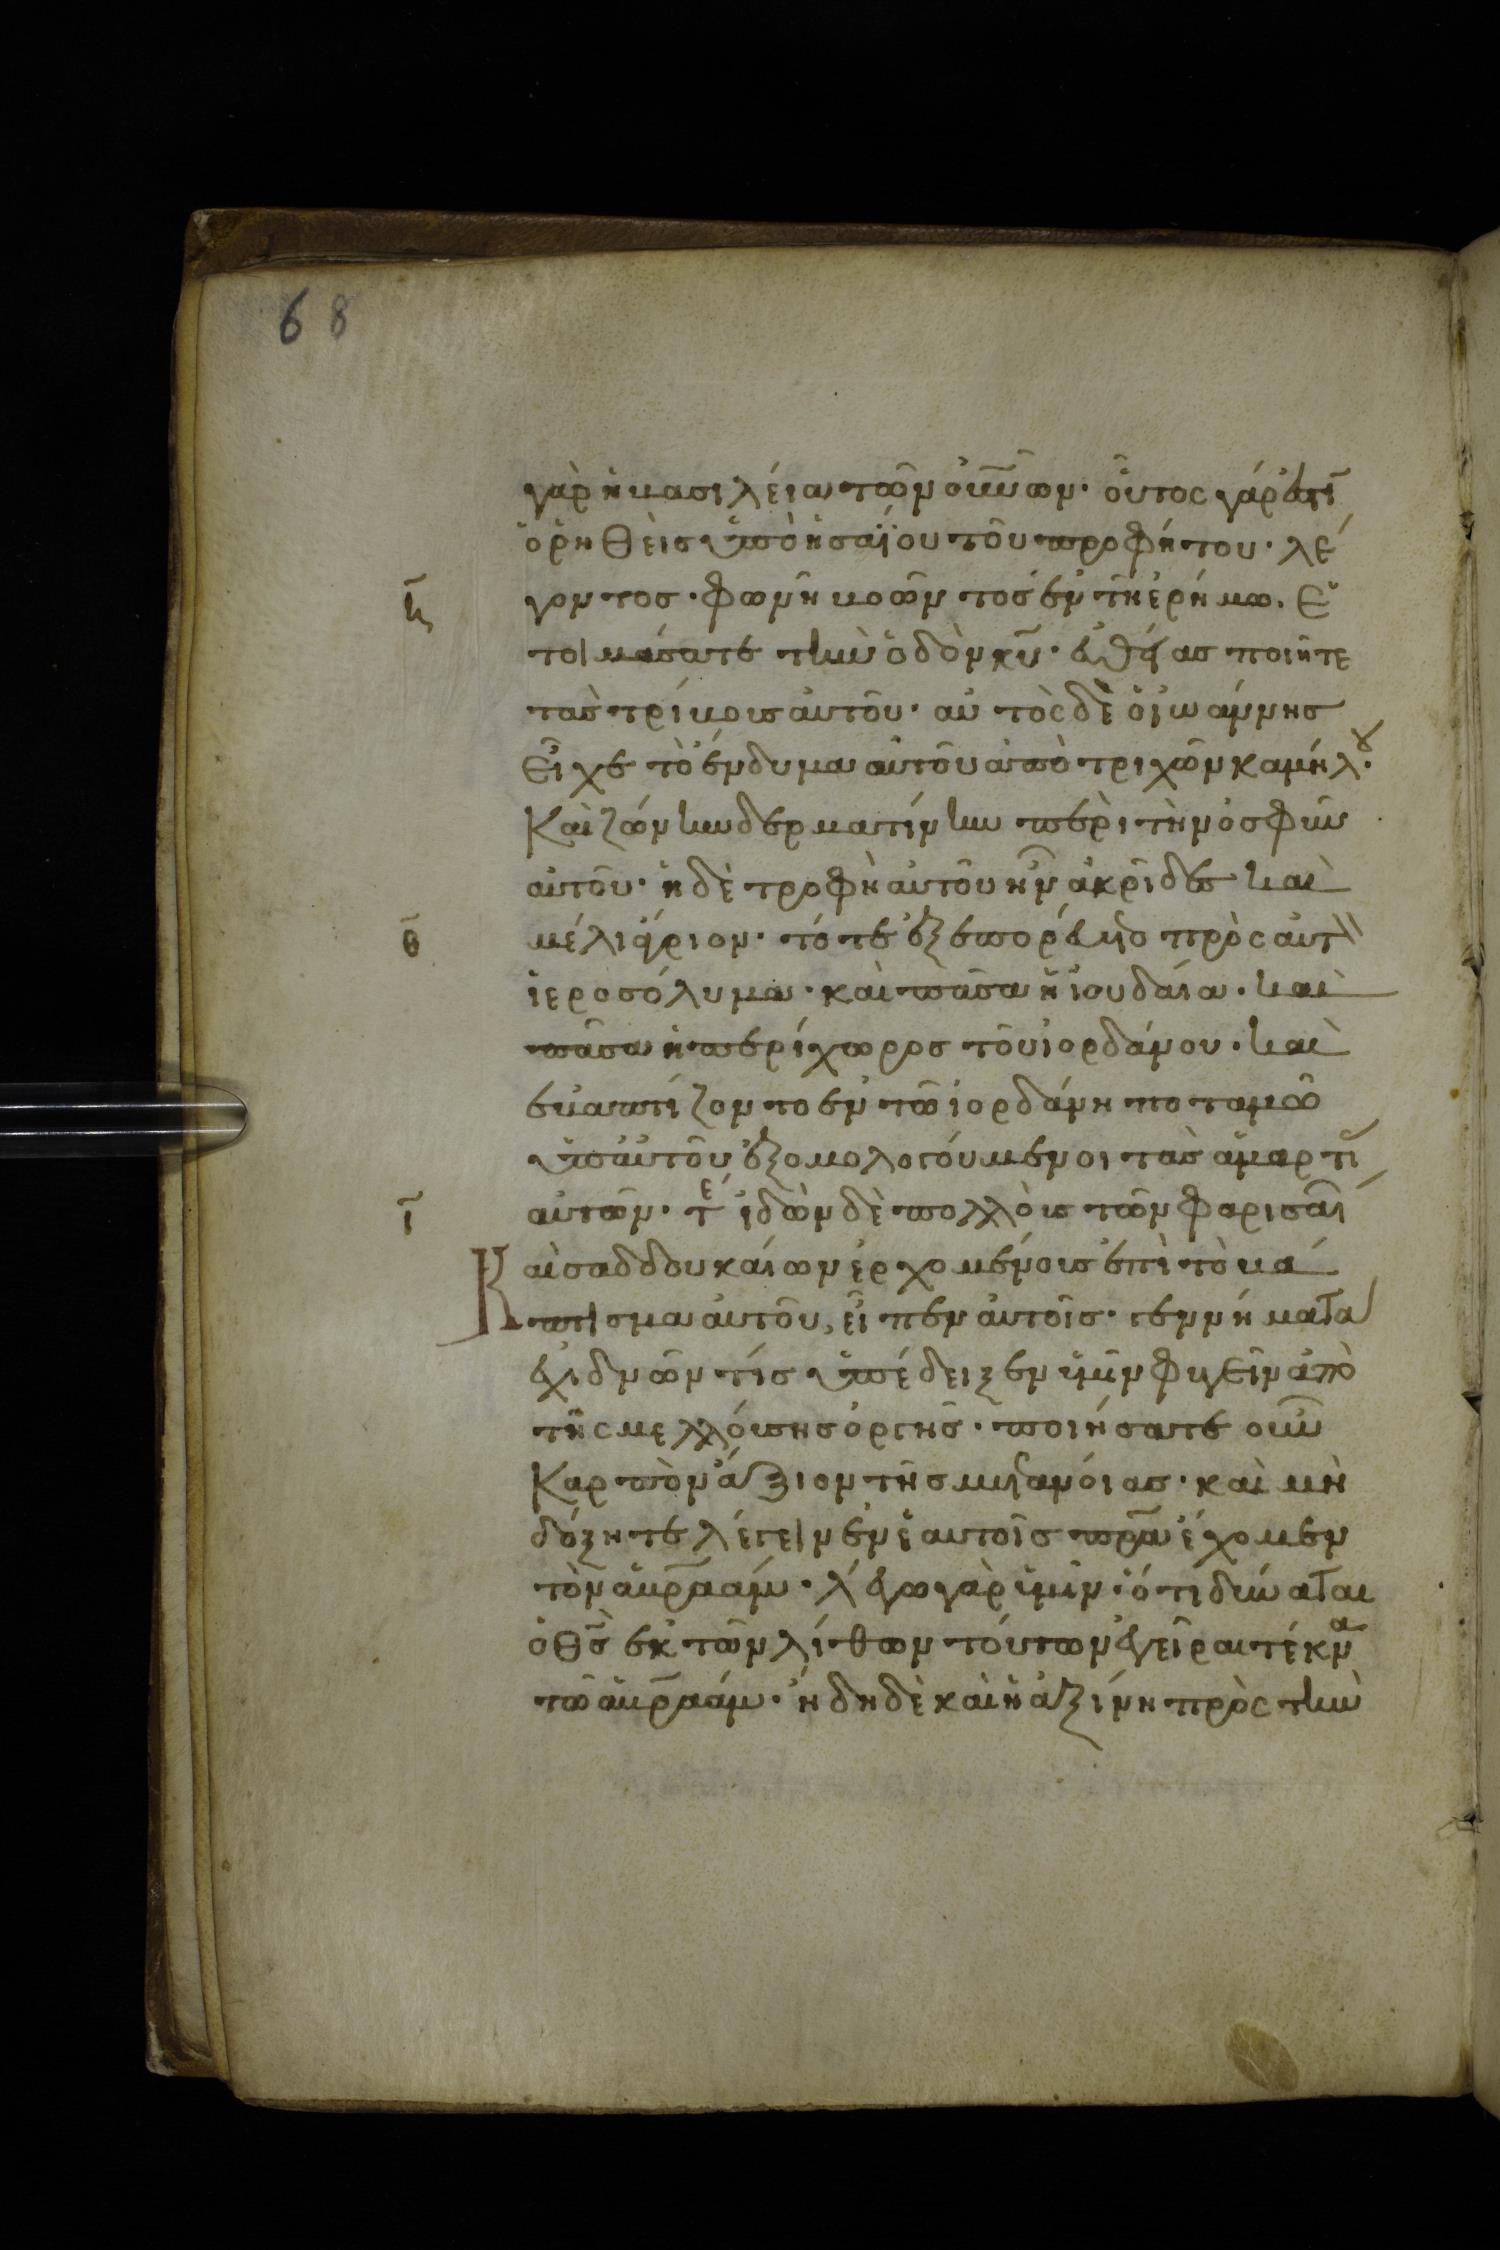 68
γὰρ ἡ βασιλεία τῶν οὐνῶν· οὗτος γάρ ἐστι
ὁ ῥηθεὶς ὑπὸ ἠσαΐου τοῦ προφήτου· λέ
η γοντος· φωνὴ βοῶντος ἐν τῆ ἐρήμω. ἑ
τοιμάσατε τὴν ὁδὸν κυ· εὐθείας ποιῆτε
τὰς τρίβους αὐτοῦ· αὐτὸς δὲ ὁ ἰωάννης
εἶχε τὸ ἔνδυμα αὐτοῦ ἀπὸ τριχῶν καμήλου·
Καὶ ζώνην δερματίνην περὶ τὴν ὀσφῦν
αὐτοῦ· ἡ δὲ τροφὴ αὐτοῦ ἦν ἀκρίδες καὶ
θ μέλι ἄγριον· τότε ἐξεπορεύετο πρὸς αὐτ
ἱεροσόλυμα· καὶ πᾶσα ἡ ἰουδαία· καὶ
πᾶσα ἡ περίχωρος τοῦ ἰορδάνου· καὶ
ἐβαπτίζοντο ἐν τῶ ἰορδάνη ποταμῶ
ὑπ αὐτοῦ ἐξομολογούμενοι τὰς ἁμαρτί
ι αὐτῶν· τε ἰδὼν δὲ πολλοὺς τῶν φαρισαί
Καὶ σαδδουκαίων ἐρχομένους ἐπὶ τὸ βά
πτισμα αὐτοῦ, εἶπεν αὐτοῖς· γεννήματα
ἐχιδνῶν τίς ὑπέδειξεν ὑμῖν φυγεῖν ἀπὸ
τῆς μελλούσης ὀργῆς· ποιήσατε οὖν
Καρπὸν ἄξιον τῆς μετανοίας· καὶ μὴ
δόξητε λέγειν ἐν ἑαυτοῖς πρα ἔχομεν
τὸν ἀβραάμ· λέγω γὰρ ὑμῖν· ὅτι δύναται
ὁ θς ἐκ τῶν λίθων τούτων ἐγεῖραι τέκνα
τῶ ἀβραάμ· ἤδη δὲ καὶ ἡ ἀξίνη πρὸς τὴν